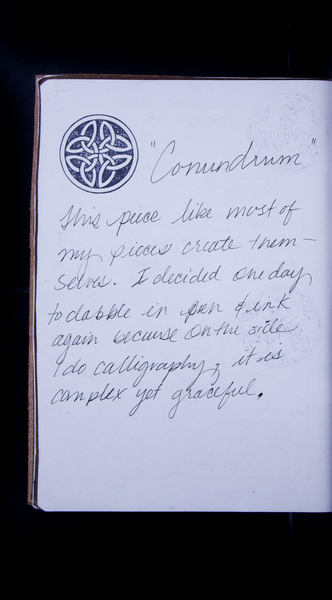 "Conundrum"
This piece like most of
my pieces create them-
selves. I decided one day
to dabble in pen & ink
again because on the side
I do calligraphy, it is
complex yet graceful.